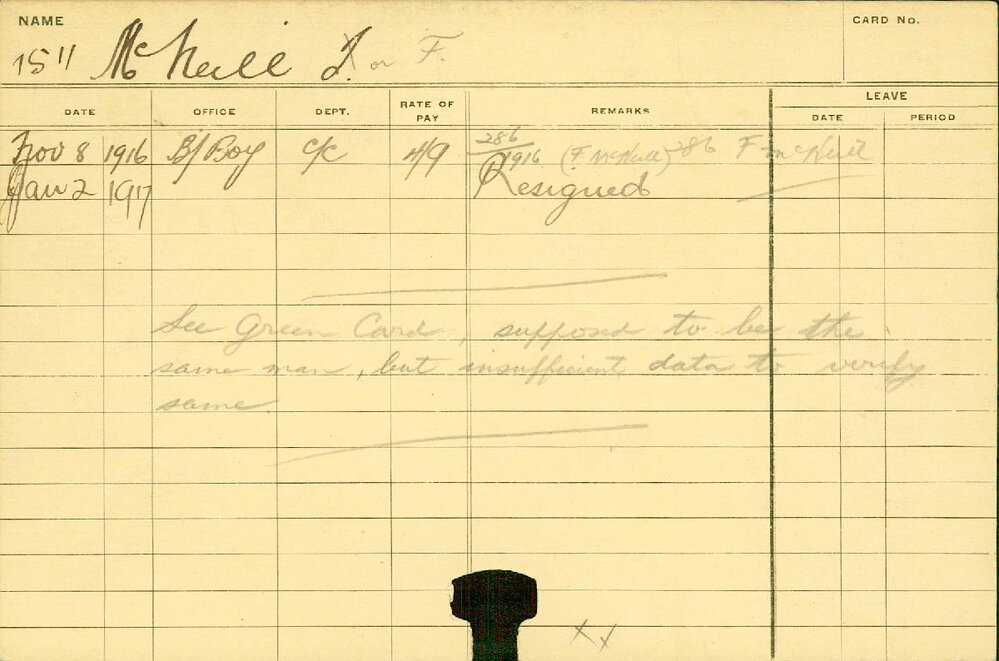 NAME
CARD No.
1511 McNeill J. or F.
DATE OFFICE DEPT. RATE OF PAY REMARKS LEAVE
DATE PERIOD
Nov 8 1916 B/Boy C/C 4/9 286/1916 (F McNeill) 286 F McNeill
Jan 2 1917 Resigned
See Green Card, supposed to be the
same man, but insufficient data to verify
same.
XX